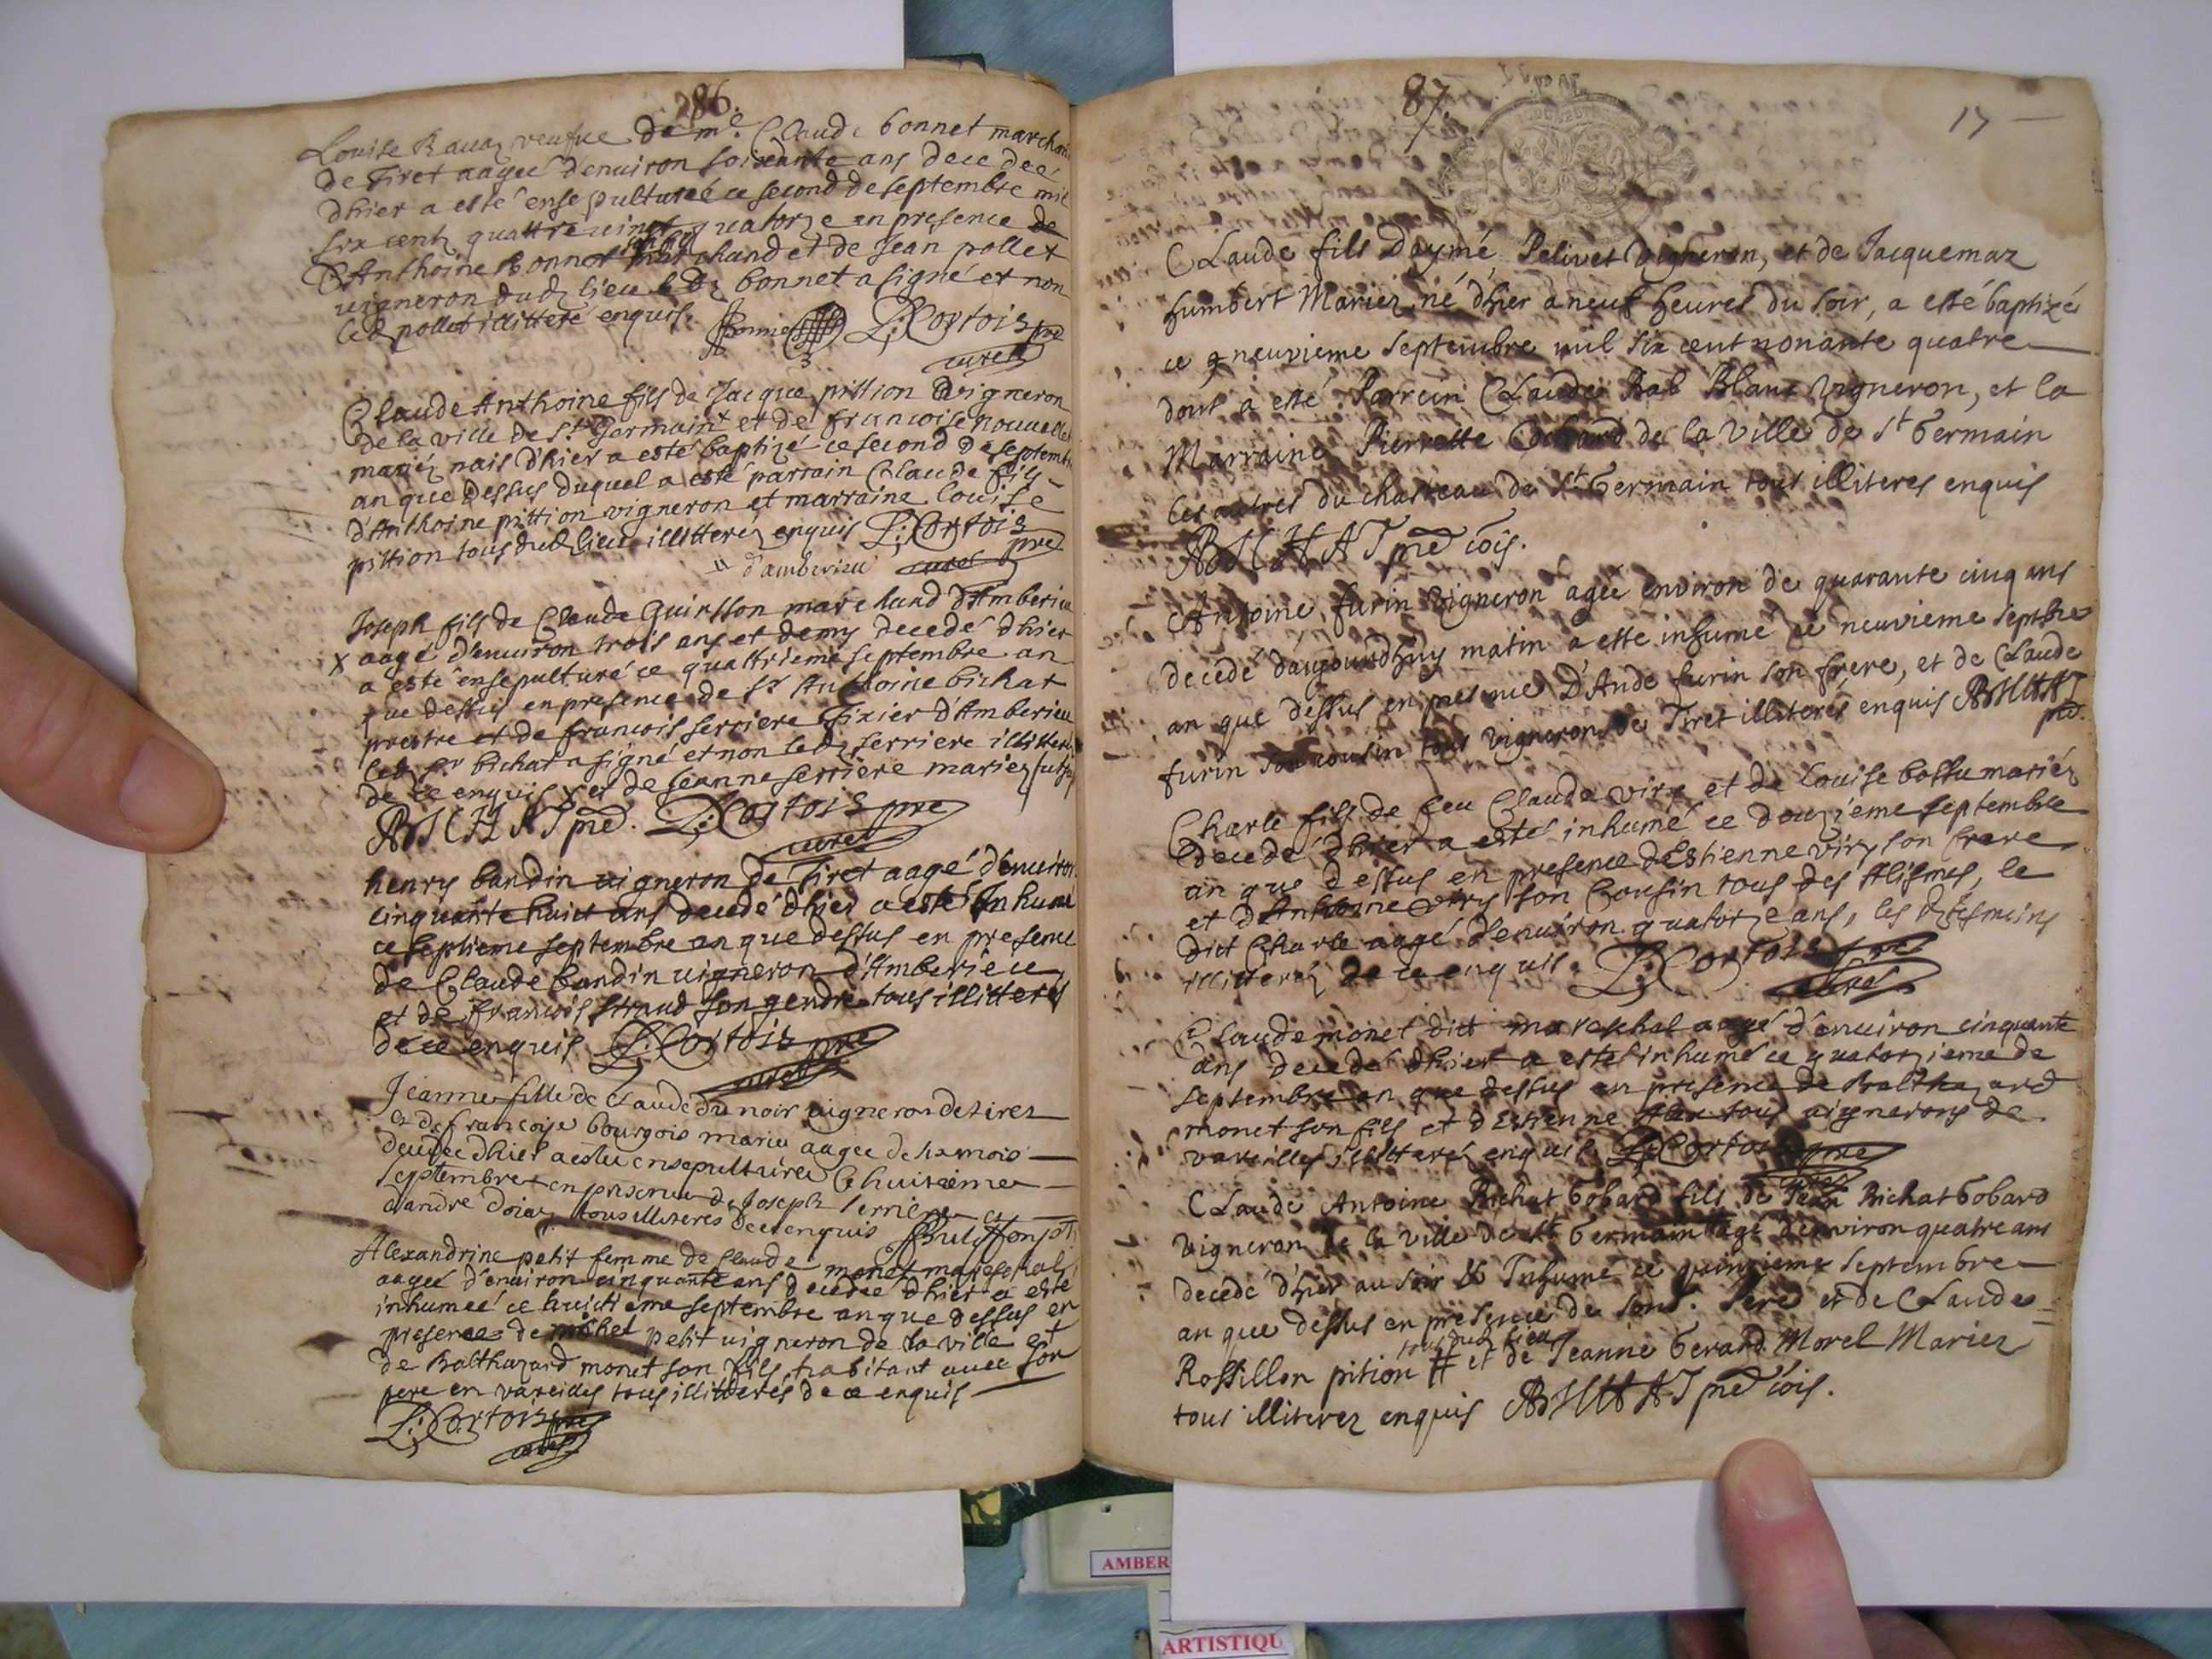 286.
Louise Rauaz veufue de me. Claude bonnet marchand
de Tiret aagee denuiron soixante ans decedeé
dhier a esté ensepultureé ce second de septembre mil
six centz quattre uingt quatorze en presence de
Anthoine Bonnet marchand et de Jean pollet
uigneron dudz lieu ledz bonnet a signé et non
ledz pollet illitteré enquis. L: Cortois pre
curé
Claude Anthoine fils de Jacque pittion uigneron
de la ville de St Germain + et de francoise nouuelle
mariéz nais d'hier a esté baptizé ce second de septembre
an que dessus duquel a esté parrain Claude fils
d'Anthoine pittion vigneron et marraine louise
pittion tous dudz lieu illitteréz enquis L: Cortois
pre
d'amberieu curé
Joseph fils de Claude Guinsson marchand d'Amberieu
x aagé d'enuiron trois ans et demy decedé dhier
a esté ensepulturé ce quattrieme septembre an
que dessus en presence de Sr Anthoine bichat
prestre et de francois serriere Tixier d'Amberieu
ledz Sr bichat a signé et non ledz serriere illitteré
de ce enquis x et de Jeanne serriere mariez
BICHAT pre. L: Cortois pre
curé
henry bandin uigneron de Tiret aagé d'enuiron
cinquante huict ans decedé dhier a esté Inhumé
ce septieme septembre an que dessus en presence
de Claude bandin uigneron d'Amberieu
et de francois straud son gendre tous illitterés
de ce enquis L: Cortois pre
curé
Jeanne fille de Claude du noir uigneron de tiret
et de francoise bourgois mariez aagee de mois
decedee dhier a estee ensepulturee ce huitieme
septembre en presence de Joseph serriere et
dandre doiaz tous illiteres de ce enquis
Alexandrine petit femme de Claude monet mareschal
aageé d'enuiron cinquante ans decedeé dhier a esté
inhumeé ce huictieme septembre an que dessus en
presence de michel petit uigneron de la ville et
de Balthazard monet son fils habitant auec son
pere en vareilles tous illitterés de ce enquis
L: Cortois pre
curé
87.
17
Claude fils d'aymé Pelivet vigneron, et de Jacquemaz
humbert Mariez, né d'hier a neuf heures du soir, a esté baptizé
ce neuvieme septembre mil six cent nonante quatre
dont a esté Parrein Claude Bal Blanc vigneron, et la
Marraine Pierrette Cochard de la ville de St Germain
les autres du chasteau de St Germain tout illiteres enquis
BICHAT pre vois.
Antoine furin vigneron agée environ de quarante cinq ans
decedé daujourdhuy matin a esté inhumé ce neuvieme septbre
an que dessus en presence D'Andé furin son frere, et de Claude
furin son cousin tous vignerons de Tiret illiterés enquis BICHAT
pre.
Charle fils de feu Claude viry et de Louise bossu mariéz
decedé dhier a esté inhumé ce douzieme septembre
an que dessus en presence d'Estienne viry son frere
et d'Anthoine viry son Cousin tous des Alismes, le
dict Charle aagé d'enuiron quatorze ans, les dz tesmoins
illitteréz de ce enquis. L: Cortois pre
curé
Claude monet dict mareschal aagé d'enuiron cinquante
ans decedé dhier a esté inhumé ce quatorzieme de
septembre an que dessus en presence de Balthazard
monet son fils et d'Estienne tous uignerons de
vareilles illitteréz enquis L: Cortois pre
curé
Claude Antoine Bichat Gobard fils de Jean Bichat Gobard
vigneron de la ville de St Germain agé d'environ quatre ans
decedé d'hier au soir & Inhumé ce quinzieme septembre
an que dessus en presence de sond. Pere et de Claude
tous dudz lieu
Rossillon pition # et de Jeanne Gerard Morel Mariez
tous illiterez enquis BICHAT pre vois.
AMBER
ARTISTIQU